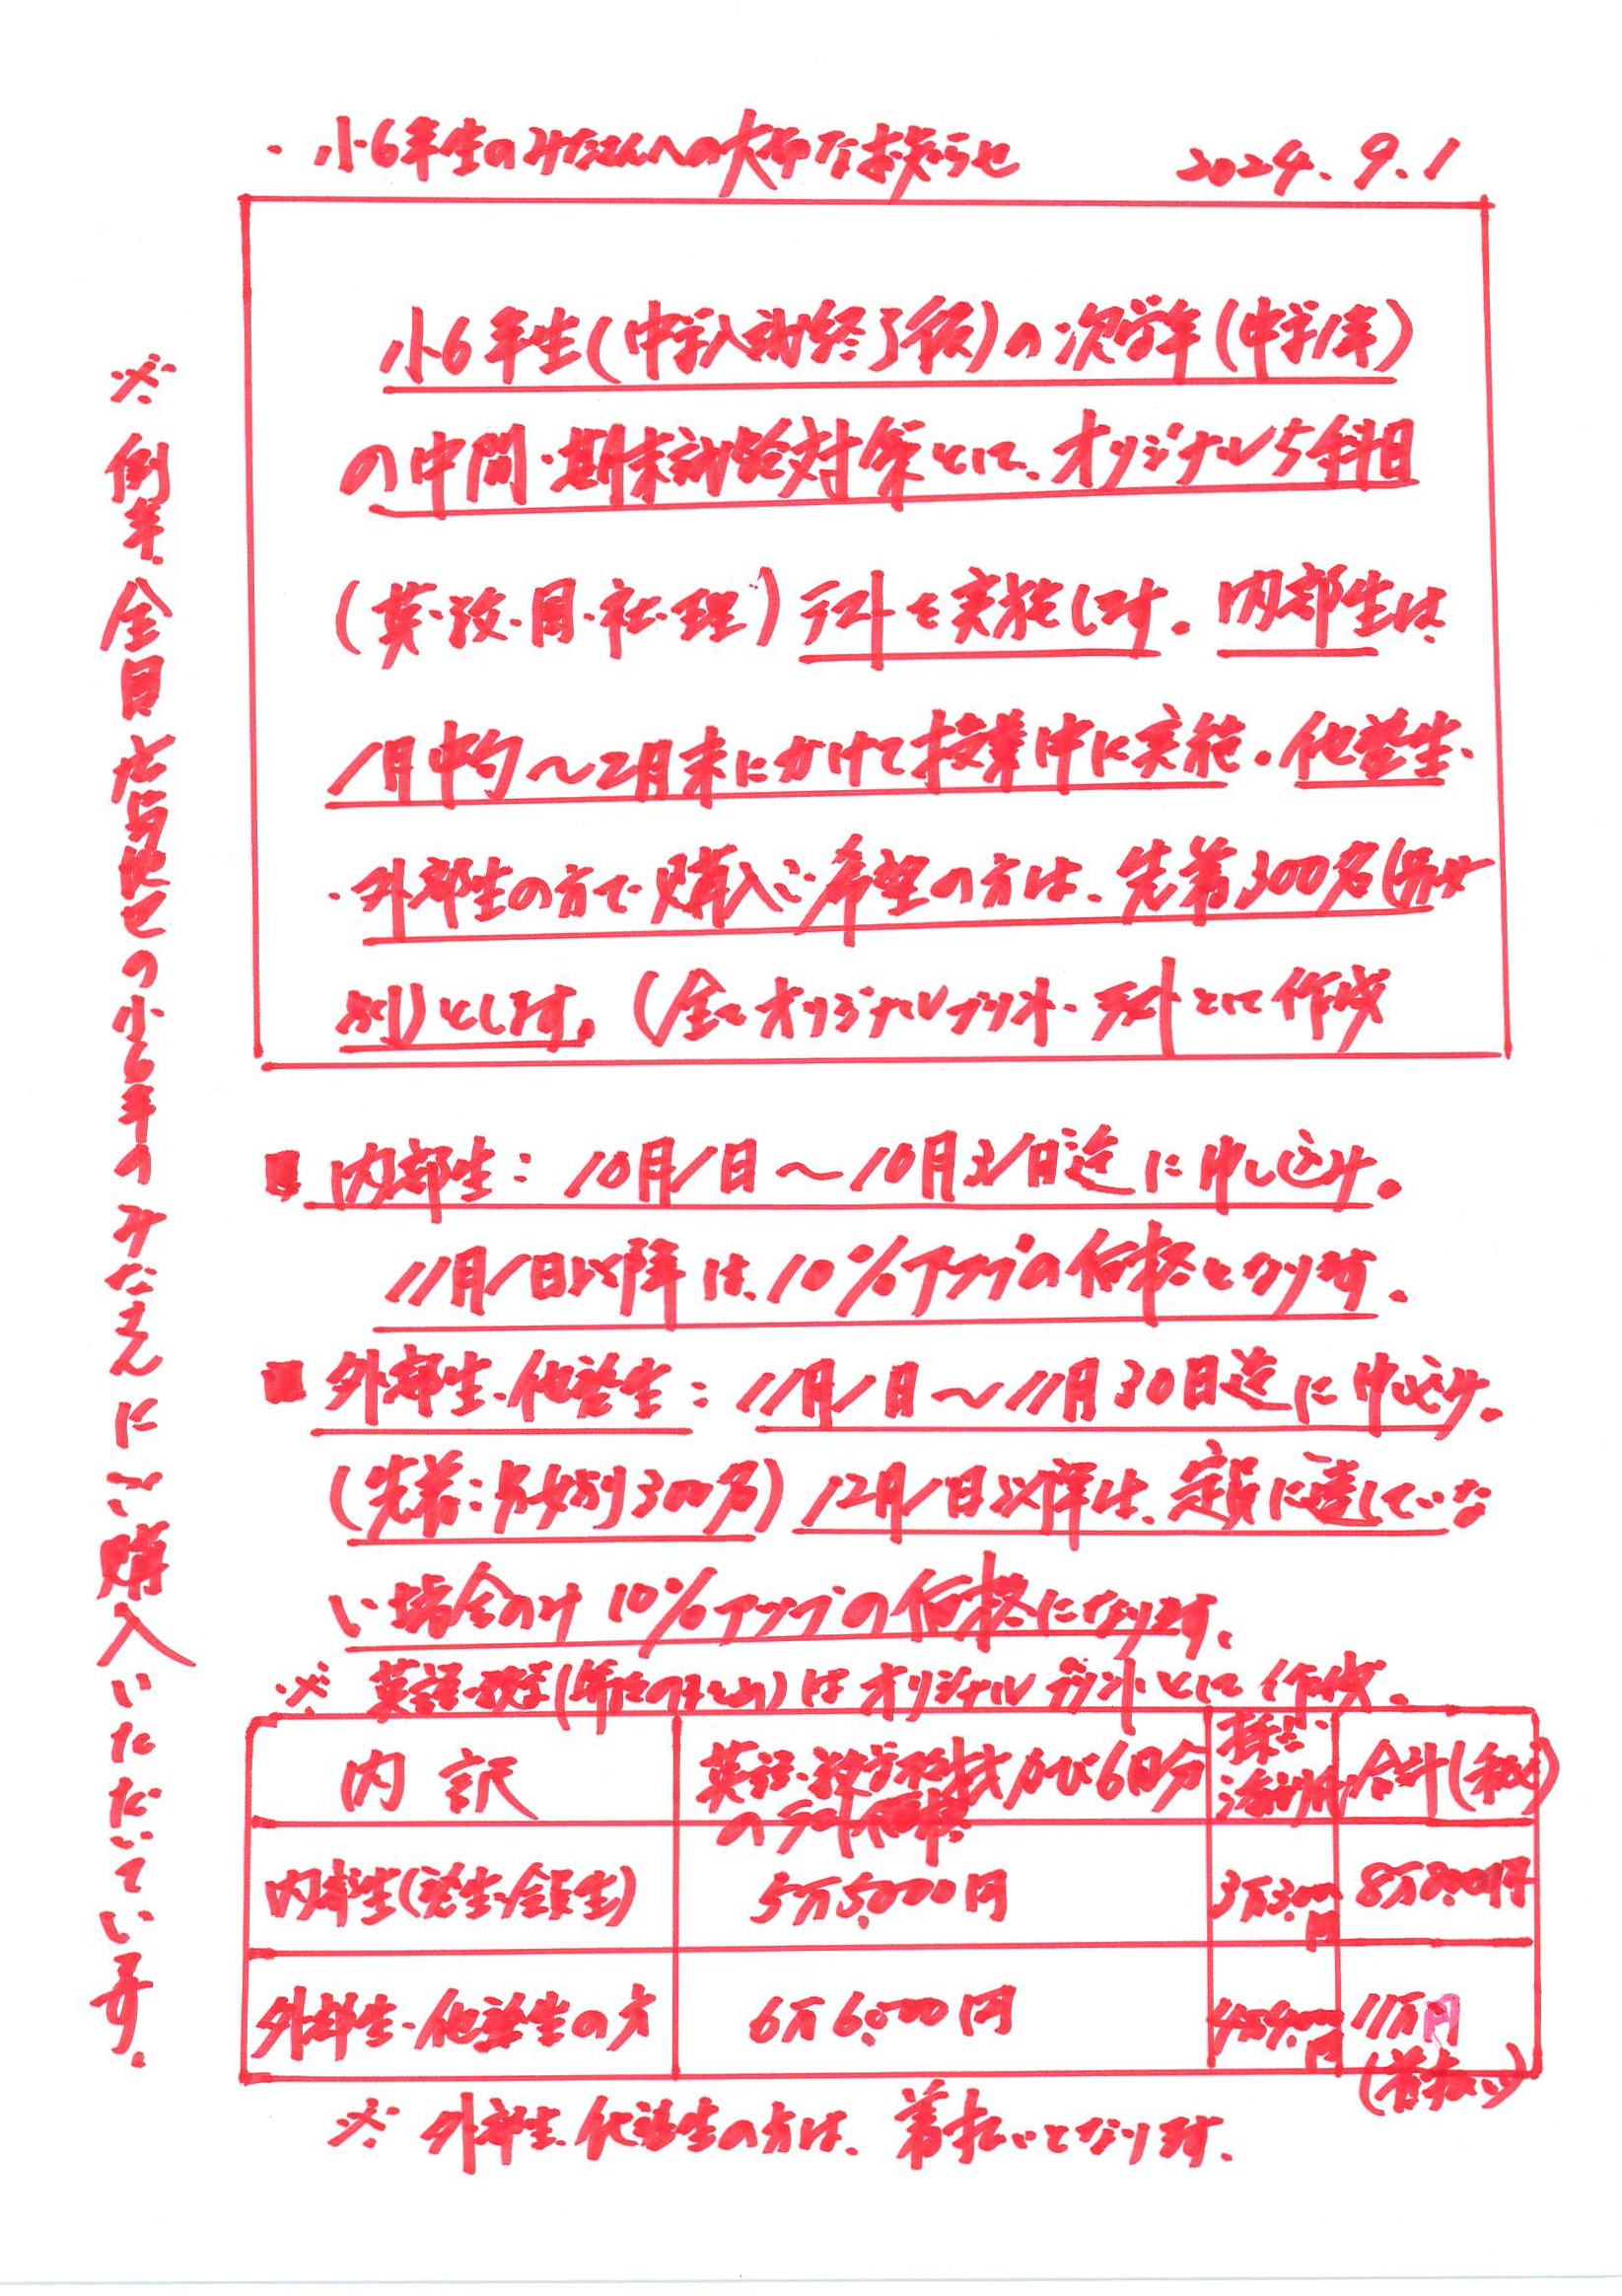 ・小6年生のみなさんへの大切なお知らせ 2024.9.1
小6年生(中学入試終了後)の次学年(中学1年)
の中間・期末試験対策として、オリジナル5科目
(英・数・国・社・理)テストを実施します。内部生は、
1月中旬～2月末にかけて授業中に実施。他塾生・
・外部生の方で購入ご希望の方は、先着300名(男女
別)とします。(全てオリジナルプリント・テストとして作成
■内部生：10月1日～10月31日迄に申し込み。
11月1日以降は、10%アップの価格となります。
■外部生・他塾生：11月1日～11月30日迄に申込み。
(先着：男女別300名)12月1日以降は、定員に達していな
い場合のみ10%アップの価格になります。
※英語・数学()はオリジナルプリントとして作成。
内訳 英語・数学 及び6回分 合計(税込)
のテスト
内部生(塾生・会員生) 5万5,000円 3万3,000円 8万8,000円
外部生・他塾生の方 6万6,000円 4万4,000円 11万円
(着払い)
※外部生、他塾生の方は、着払いとなります。
※例年、全員 の小6年のみなさんにご購入いただいています。